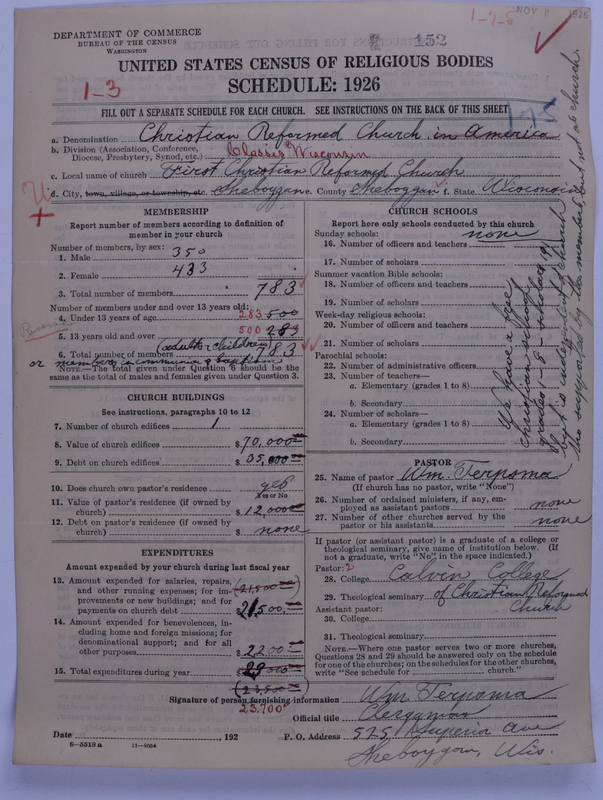 1-7-5
NOV 8 1926
DEPARTMENT OF COMMERCE
BUREAU OF THE CENSUS
WASHINGTON
152
UNITED STATES CENSUS OF RELIGIOUS BODIES
SCHEDULE: 1926
1-3
FILL OUT A SEPARATE SCHEDULE FOR EACH CHURCH. SEE INSTRUCTIONS ON THE BACK OF THIS SHEET
1-75
a. Denomination Christian Reformed Church in America
b. Division (Association, Conference, Diocese, Presbytery, Synod, etc.) Classis Wisconsin
c. Local name of church First Christian Reformed Church
d. City, town, village, or township, etc. Sheboygan e. County Sheboygan f. State Wisconsin
MEMBERSHIP
Report number of members according to definition of member in your church
Number of members, by sex:
1. Male 350
2. Female 433
3. Total number of members 783
Number of members under and over 13 years old:
4. Under 13 years of age 283 500
Reverse
5. 13 years old and over 500 283
(adults & children)
6. Total number of members 783
or members in communion & baptism
NOTE.—The total given under Question 6 should be the same as the total of males and females given under Question 3.
CHURCH BUILDINGS
See instructions, paragraphs 10 to 12
7. Number of church edifices 1
8. Value of church edifices $70,000
9. Debt on church edifices $35,000
10. Does church own pastor's residence yes
Yes or No
11. Value of pastor's residence (if owned by church) $12,000
12. Debt on pastor's residence (if owned by church) $ none
EXPENDITURES
Amount expended by your church during last fiscal year
13. Amount expended for salaries, repairs, and other running expenses; for improvements or new buildings; and for payments on church debt (21,500) $21500
14. Amount expended for benevolences, including home and foreign missions; for denominational support; and for all other purposes $2200
15. Total expenditures during year $
23,700
CHURCH SCHOOLS
Report here only schools conducted by this church
Sunday schools: none
16. Number of officers and teachers
17. Number of scholars
Summer vacation Bible schools:
18. Number of officers and teachers
19. Number of scholars
Week-day religious schools:
20. Number of officers and teachers
21. Number of scholars
Parochial schools:
22. Number of administrative officers
23. Number of teachers—
a. Elementary (grades 1 to 8)
b. Secondary
24. Number of scholars—
a. Elementary (grades 1 to 8)
b. Secondary
We have a free
Christian school
grades 1-8 - scholars 191
but is independent of church
tho supported by the members but not as church.
PASTOR
25. Name of pastor Wm. Terpsma
(If church has no pastor, write "None")
26. Number of ordained ministers, if any, employed as assistant pastors none
27. Number of other churches served by the pastor or his assistants none
If pastor (or assistant pastor) is a graduate of a college or theological seminary, give name of institution below. (If not a graduate, write "No" in the space indicated.)
Pastor: 2
28. College Calvin College
29. Theological seminary of Christian Reformed Church
Assistant pastor:
30. College
31. Theological seminary
NOTE.—Where one pastor serves two or more churches, Questions 28 and 29 should be answered only on the schedule for one of the churches; on the schedules for the other churches, write "See schedule for church."
Signature of person furnishing information Wm. Terpsma
Official title Clergyman
Date , 192 P. O. Address 525 Superior Ave
Sheboygan, Wis.
6-5518 a 11-9084